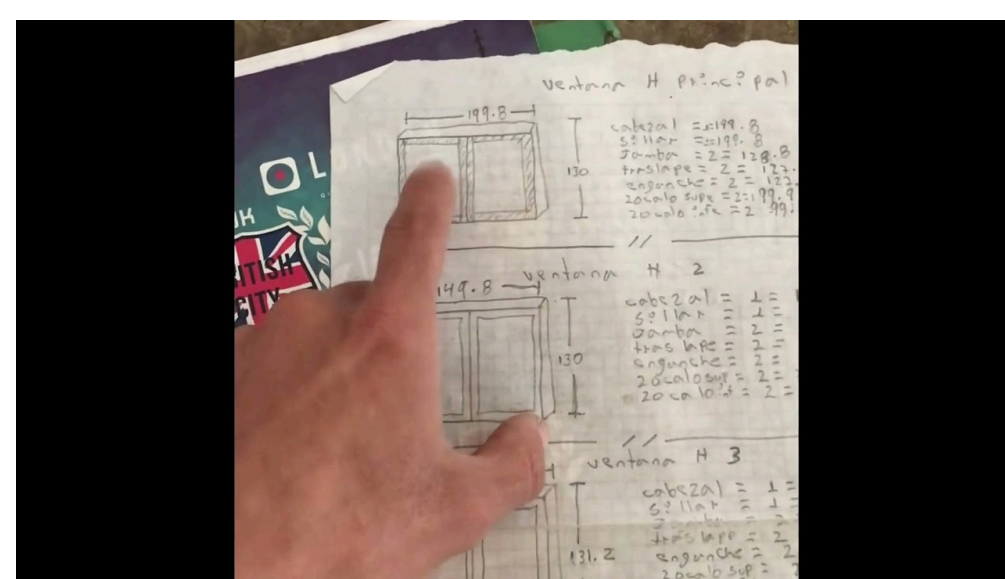 ventana H principal
199.8
130
cabezal =1=199.8
sillar =1=199.8
Jamba = 2 = 128.8
traslape = 2 = 127.
enganche = 2 = 127.
zocalo supe = 2=199.9
zocalo infe = 2 99.
//
ventana H 2
149.8
130
cabezal = 1 =
sillar = 1 =
Jamba = 2 =
traslape = 2 =
enganche = 2 =
zocalosup = 2 =
zocaloinf = 2 =
//
ventana H 3
131.2
cabezal = 1 =
sillar = 1 =
Jamba = 2 =
traslape = 2
enganche = 2
zocalo sup =
L
UK
BRITISH
CITY